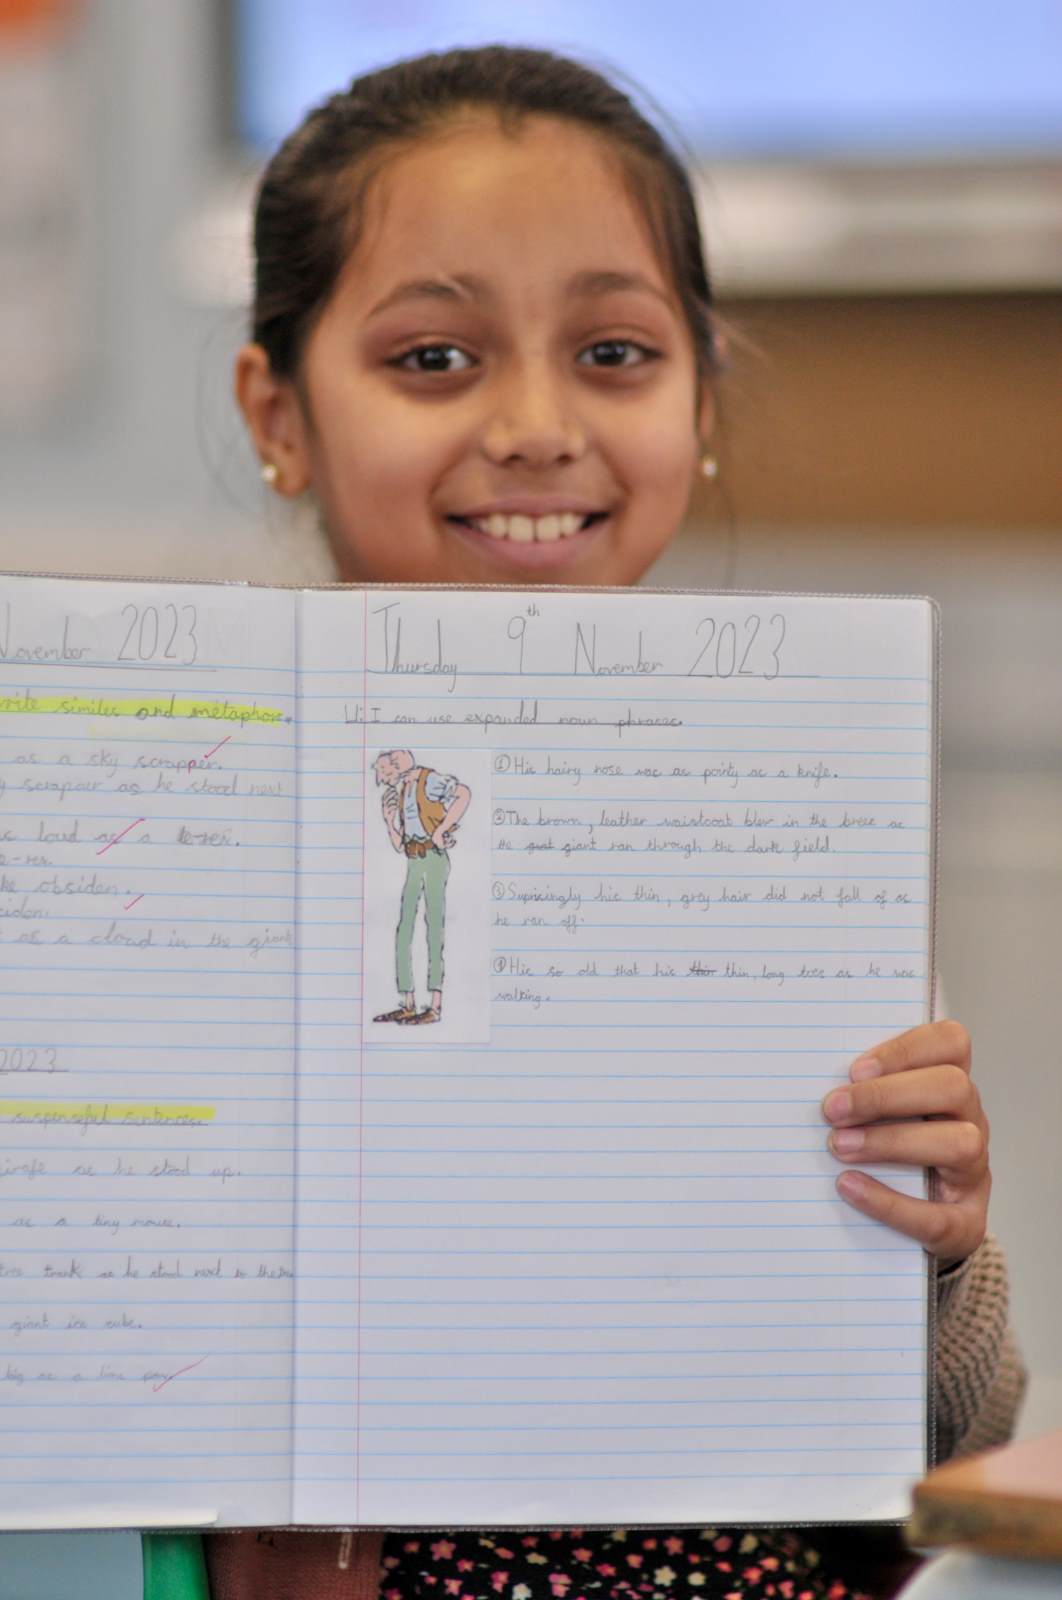 November 2023
write similes and metaphor.
as a sky scrapper.
y scrapour as he stood next
s loud as a te-rex.
e-rex.
ke obsiden.
siden.
as a cloud in the giant
2023
suspenseful sentences.
irafe as he stood up.
as a tiny mouse.
tree trank as he stood next to the
giant ice cube.
big as a
Thursday 9th November 2023
I can use expanded noun phrases.
① His hairy nose was as pointy as a knife.
② The brown, leather waistcoat blew in the breze as
the giant ran through the dark field.
③ Suprisingly his thin, grey hair did not fall of as
he ran off.
④ His so old that his thin, long toes as he was
walking.